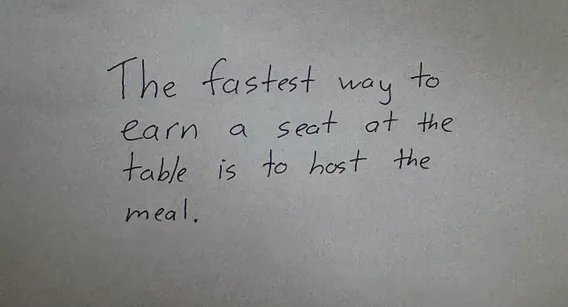 The fastest way to
earn a seat at the
table is to host the
meal.